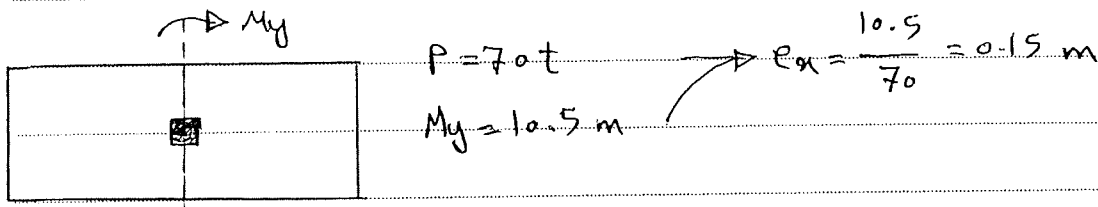 My
P = 70t
My = 10.5 m
ex = 10.5 / 70 = 0.15 m